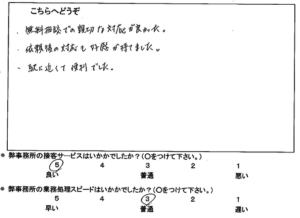 こちらへどうぞ
・無料相談での親切な対応が良かった。
・依頼後の対応も好感が持てました。
・駅に近くて便利でした。
* 弊事務所の接客サービスはいかかでしたか?(○をつけて下さい。)
5 4 3 2 1
良い 普通 悪い
* 弊事務所の業務処理スピードはいかかでしたか?(○をつけて下さい。)
5 4 3 2 1
早い 普通 遅い